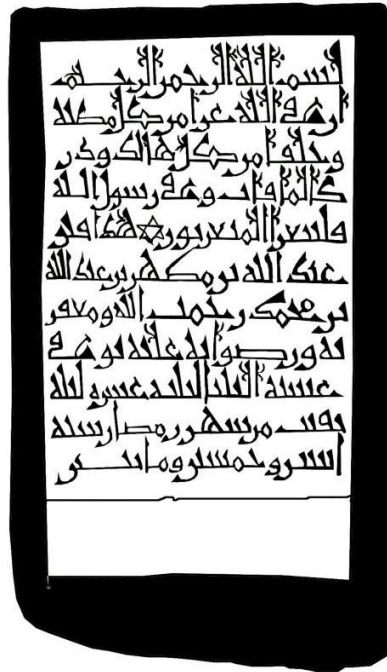 بسم الله الرحمن الرحيم
ان في الله عزا من كل مصيبة
وخلفا من كل هالك ودر
كا لما فات وفي رسول الله
فليتعزا المتعزيون هذا قبر
عبد الله بن مطهر بن عبد الله
بن محمد رحمت الله ومغفر
ته ورضوانه عليه توفي
عشية الثلثا لثلث عشرة ليلة
بقيت من شهر رمضان سنة
اثنين وخمسين ومايتين